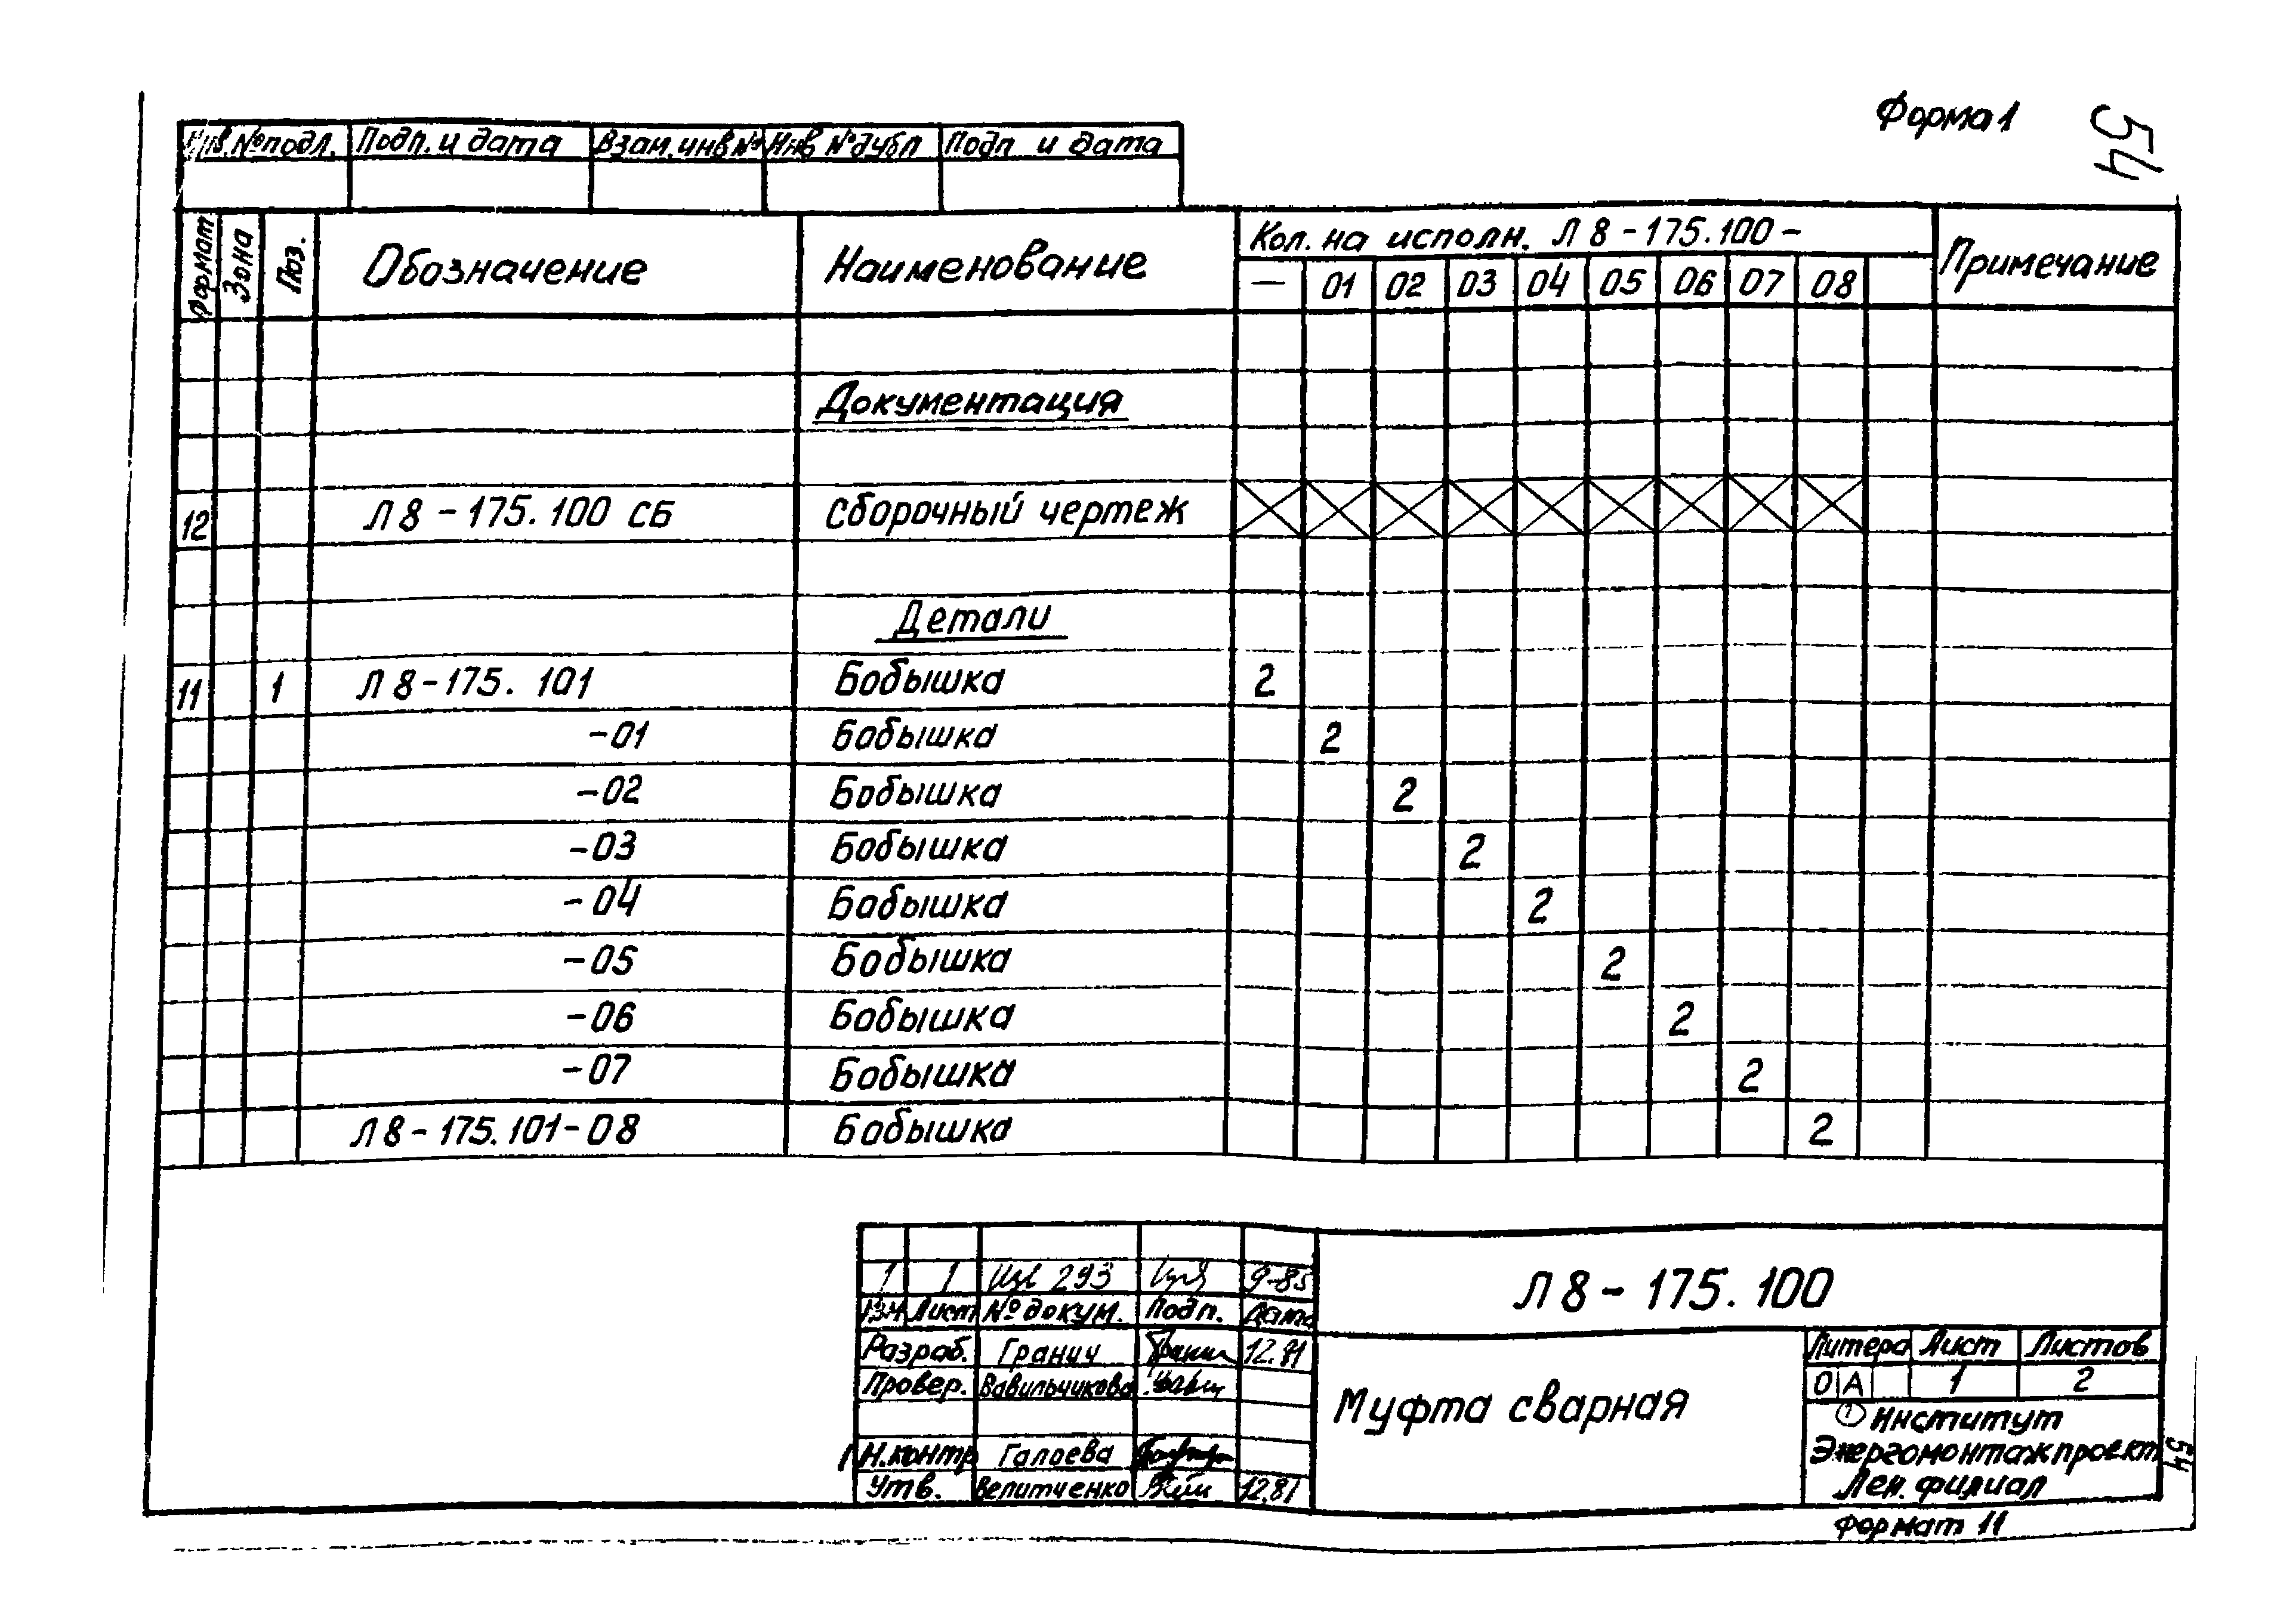 Форма 1
54
Инв.№подл. Подп. и дата Взам.инв№ Инв №дубл Подп и дата
Формат Зона Поз. Обозначение Наименование Кол. на исполн. Л8-175.100- Примечание
— 01 02 03 04 05 06 07 08
Документация
12 Л8-175.100 СБ Сборочный чертеж
Детали
11 1 Л8-175.101 Бобышка 2
-01 Бобышка 2
-02 Бобышка 2
-03 Бобышка 2
-04 Бобышка 2
-05 Бобышка 2
-06 Бобышка 2
-07 Бобышка 2
Л8-175.101-08 Бобышка 2
1 1 Изв 293 9-85
Изм Лист № докум. Подп. Дата
Разраб. Гранич 12.81
Провер. Вавильчикова
Н.контр Галоева
Утв. Велитченко 12.81
Л8-175.100
Муфта сварная
Литера Лист Листов
О А 1 2
1 Институт
Энергомонтажпроект
Лен. филиал
54
Формат 11